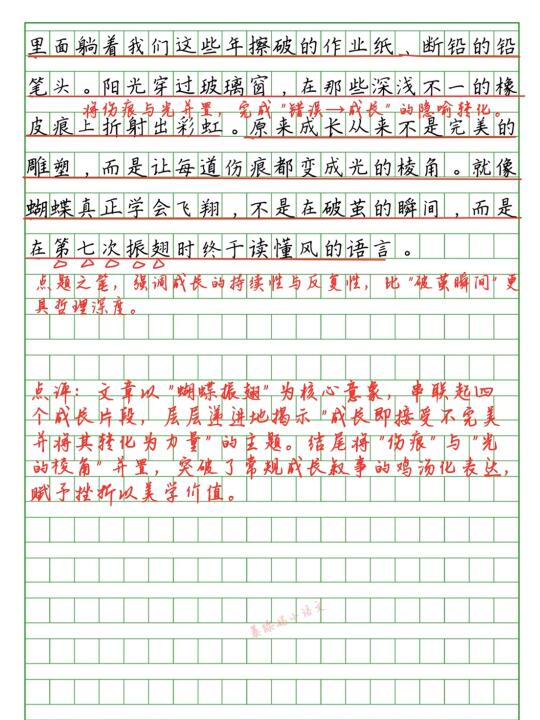 里面躺着我们这些年擦破的作业纸、断铅的铅
笔头。阳光穿过玻璃窗，在那些深浅不一的橡
将伤痕与光并置，完成"错误→成长"的隐喻转化。
皮痕上折射出彩虹。原来成长从来不是完美的
雕塑，而是让每道伤痕都变成光的棱角。就像
蝴蝶真正学会飞翔，不是在破茧的瞬间，而是
在第七次振翅时终于读懂风的语言。
点题之笔，强调成长的持续性与反复性，比"破茧瞬间"更
具哲理深度。
点评：文章以"蝴蝶振翅"为核心意象，串联起四
个成长片段，层层递进地揭示"成长即接受不完美
并将其转化为力量"的主题。结尾将"伤痕"与"光
的棱角"并置，突破了常规成长叙事的鸡汤化表达，
赋予挫折以美学价值。
小语文